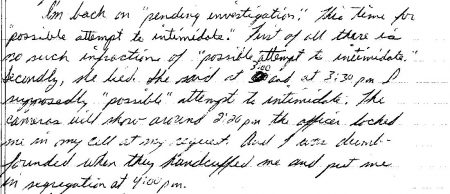 I'm back on "pending investigation". This time for
"possible attempt to intimidate". First of all there is
no such infraction of "possible attempt to intimidate."
Secondly, she lied. She said at 3:00 and at 3:30 pm I
supposedly "possible" attempt to intimidate. The
cameras will show around 2:30 pm the officer locked
me in my cell at my request. And I was dumb-
founded when they handcuffed me and put me
in segregation at 4:00 pm.